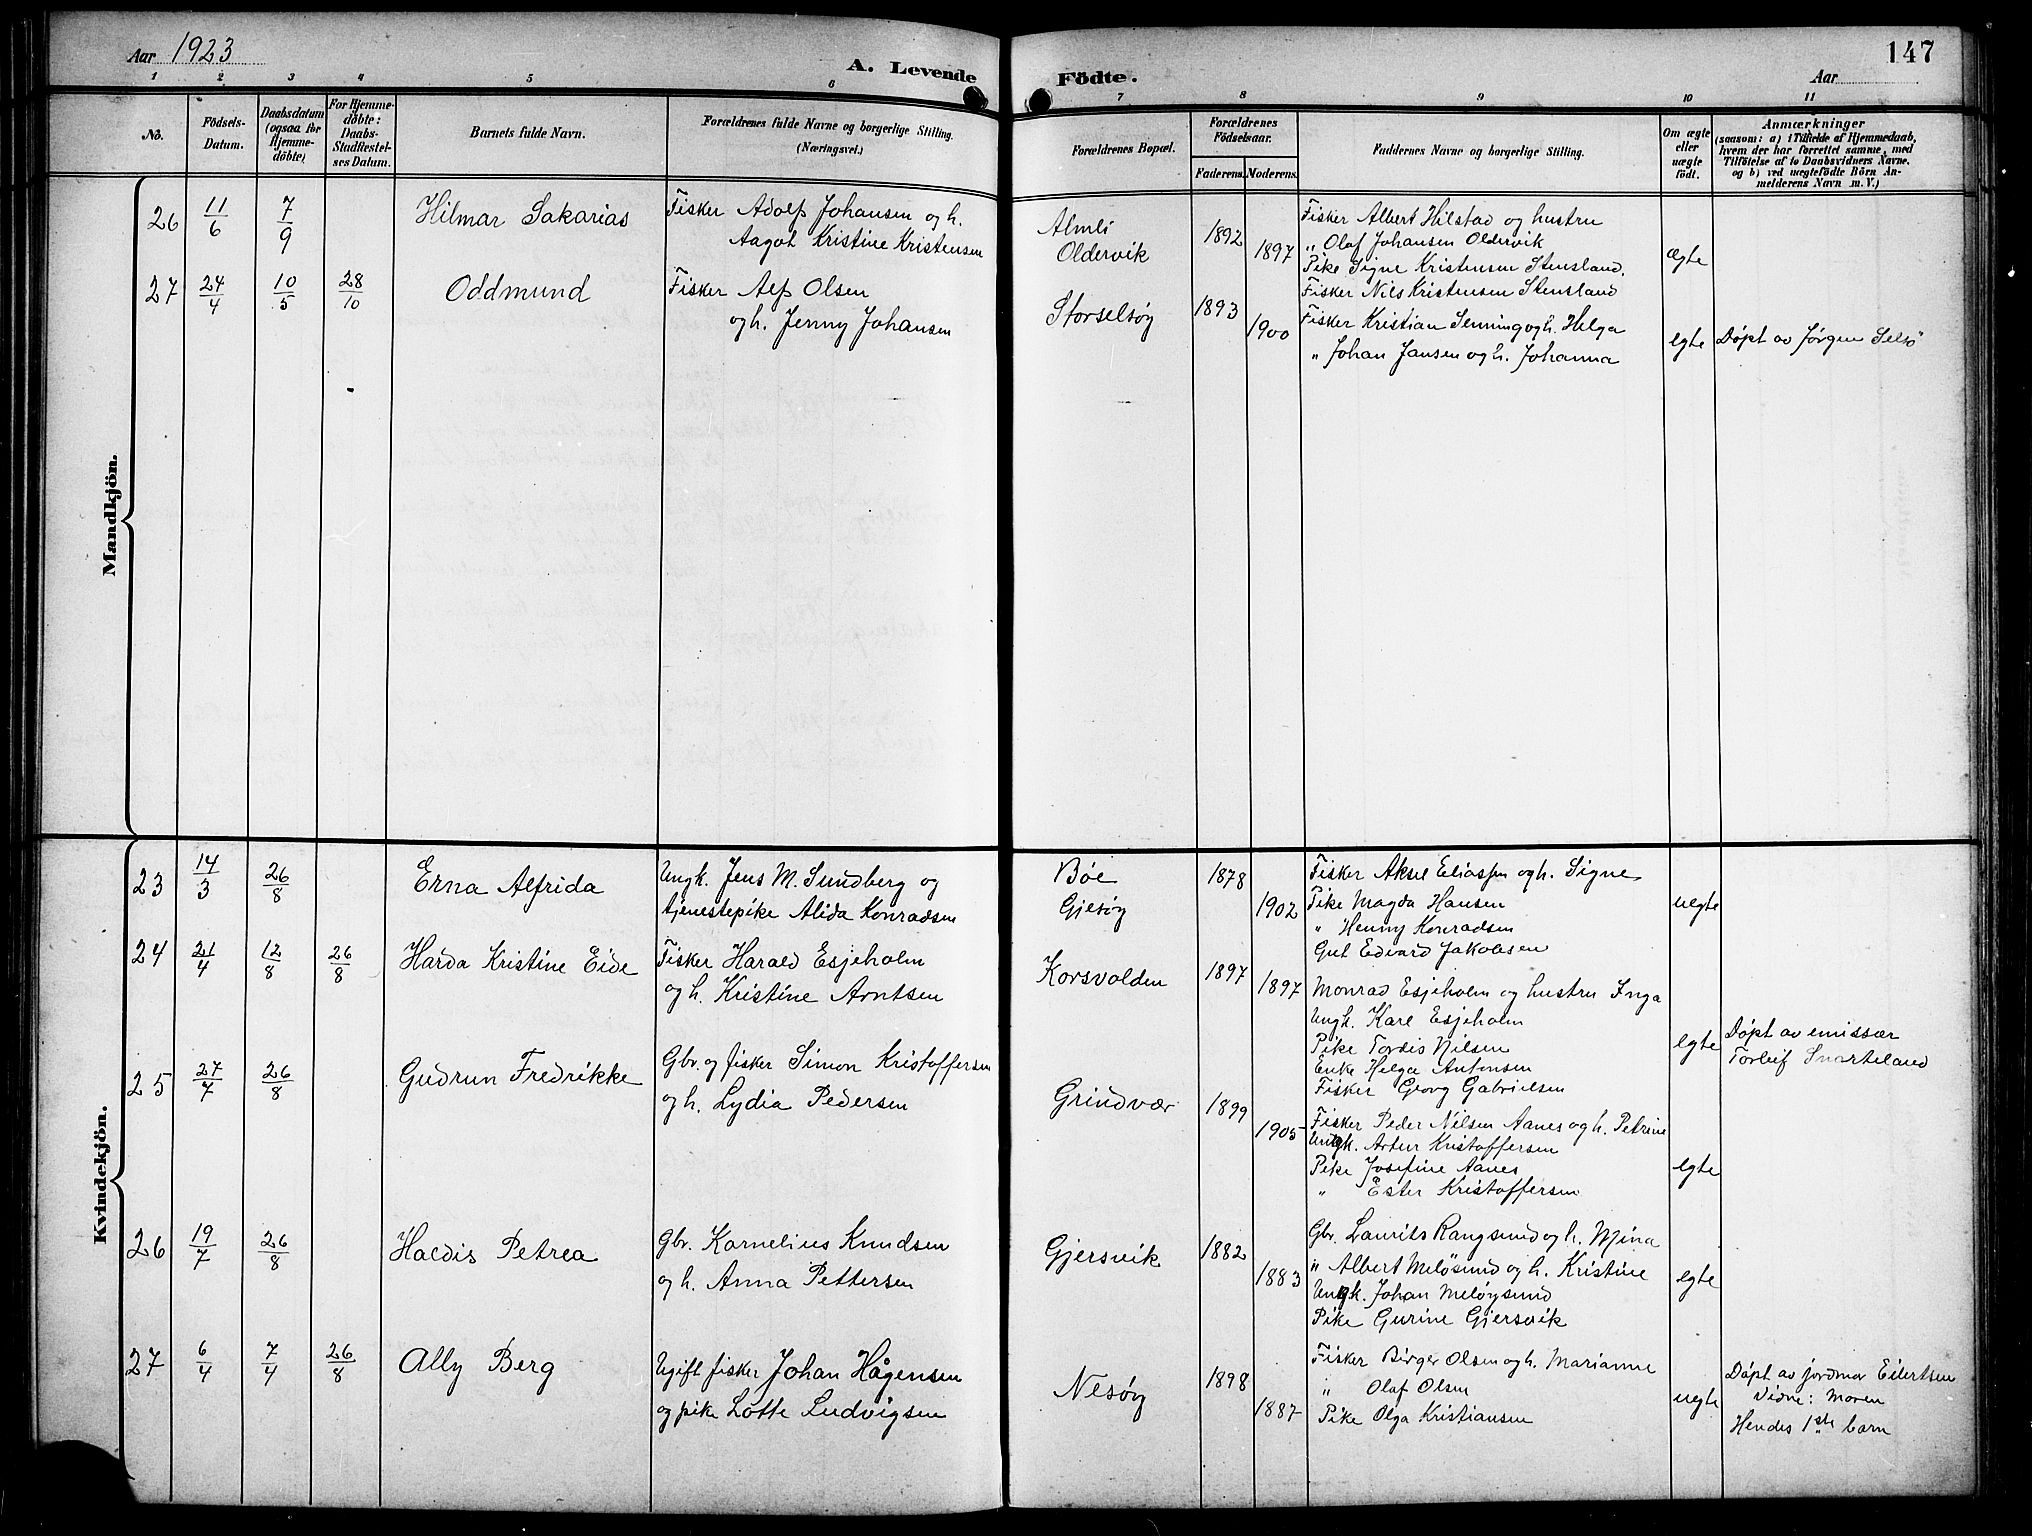 Aar 1923
A. Levende Födte.
Aar
147
1 2 3 4 5 6 7 8 9 10 11
No.
Födsels-Datum.
Daabsdatum (ogsaa for Hjemme-döbte)
For Hjemme-döbte: Daabs-Stadfæstel-ses Datum.
Barnets fulde Navn.
Forældrenes fulde Navne og borgerlige Stilling. (Næringsvei.)
Forældrenes Bopæl.
Forældrenes Födselsaar.
Faderens. Moderens.
Faddernes Navne og borgerlige Stilling.
Om ægte eller uægte födt.
Anmærkninger
(saasom: a) i Tilfælde af Hjemmedaab,
hvem der har forrettet samme, med
Tilföielse af to Daabsvidners Navne.
og b) ved uægtefödte Börn An-
melderens Navn m. V.)
Mandkjön.
26 11/6 7/9 Hilmar Sakarias
Fisker Adolf Johansen og h.
Aagot Kristine Kristensen
Almli
Oldervik
1892
1897
Fisker Albert Hilstad og hustru
„ Olaf Johansen Oldervik
Pike Signe Kristensen Stensland.
Fisker Nils Kristensen Stensland
ægte
27 24/4 10/5 28/10 Oddmund
Fisker Alf Olsen
og h. Jenny Johansen
Storselsøy
1893
1900
Fisker Kristian Senning og h. Helga
„ Johan Jansen og h. Johanna
egte
Døpt av Jørgen Selsö
Kvindekjön.
23 14/3 26/8 Erna Alfrida
Ungk. Jens M. Sundberg og
tjenestepike Alida Konradsen
Bøe
Gjesøy
1878
1902
Fisker Aksel Eliassen og h. Signe
Pike Magda Hansen
„ Henny Konradsen
Gut Edvard Jakobsen
uegte
24 21/4 12/8 26/8 Harda Kristine Eide
Fisker Harald Esjeholm
og h. Kristine Arntsen
Korsvolden
1897
1897
Monrad Esjeholm og hustru Inga
Ungk. Karl Esjeholm
Pike Tordis Nilsen
Enke Helga Antonsen
Fisker Georg Gabrielsen
egte
Døpt av emissær
Torleif Snarteland
25 27/7 26/8 Gudrun Fredrikke
Gbr. og fisker Simon Kristoffersen
og h. Lydia Pedersen
Grindvær
1899
1905
Fisker Peder Nilsen Aanes og h. Petrine
Ungk. Artur Kristoffersen
Pike Josefine Aanes
„ Ester Kristoffersen
egte
26 19/7 26/8 Haldis Petrea
Gbr. Kornelius Knudsen
og h. Anna Pettersen
Gjersvik
1882
1883
Gbr. Laurits Rangsund og h. Mina
„ Albert Meløsund og h. Kristine
Ungk. Johan Meløysund
Pike Gurine Gjersvik
egte
27 6/4 7/4 26/8 Ally Berg
Ugift fisker Johan Hågensen
og pike Lotte Ludvigsen
Nesøy
1898
1887
Fisker Birger Olsen og h. Marianne
„ Olaf Olsen
Pike Olga Kristiansen
uegte
Døpt av jordmor Eilertsen
Vidne: Moren
Hendes 1ste barn